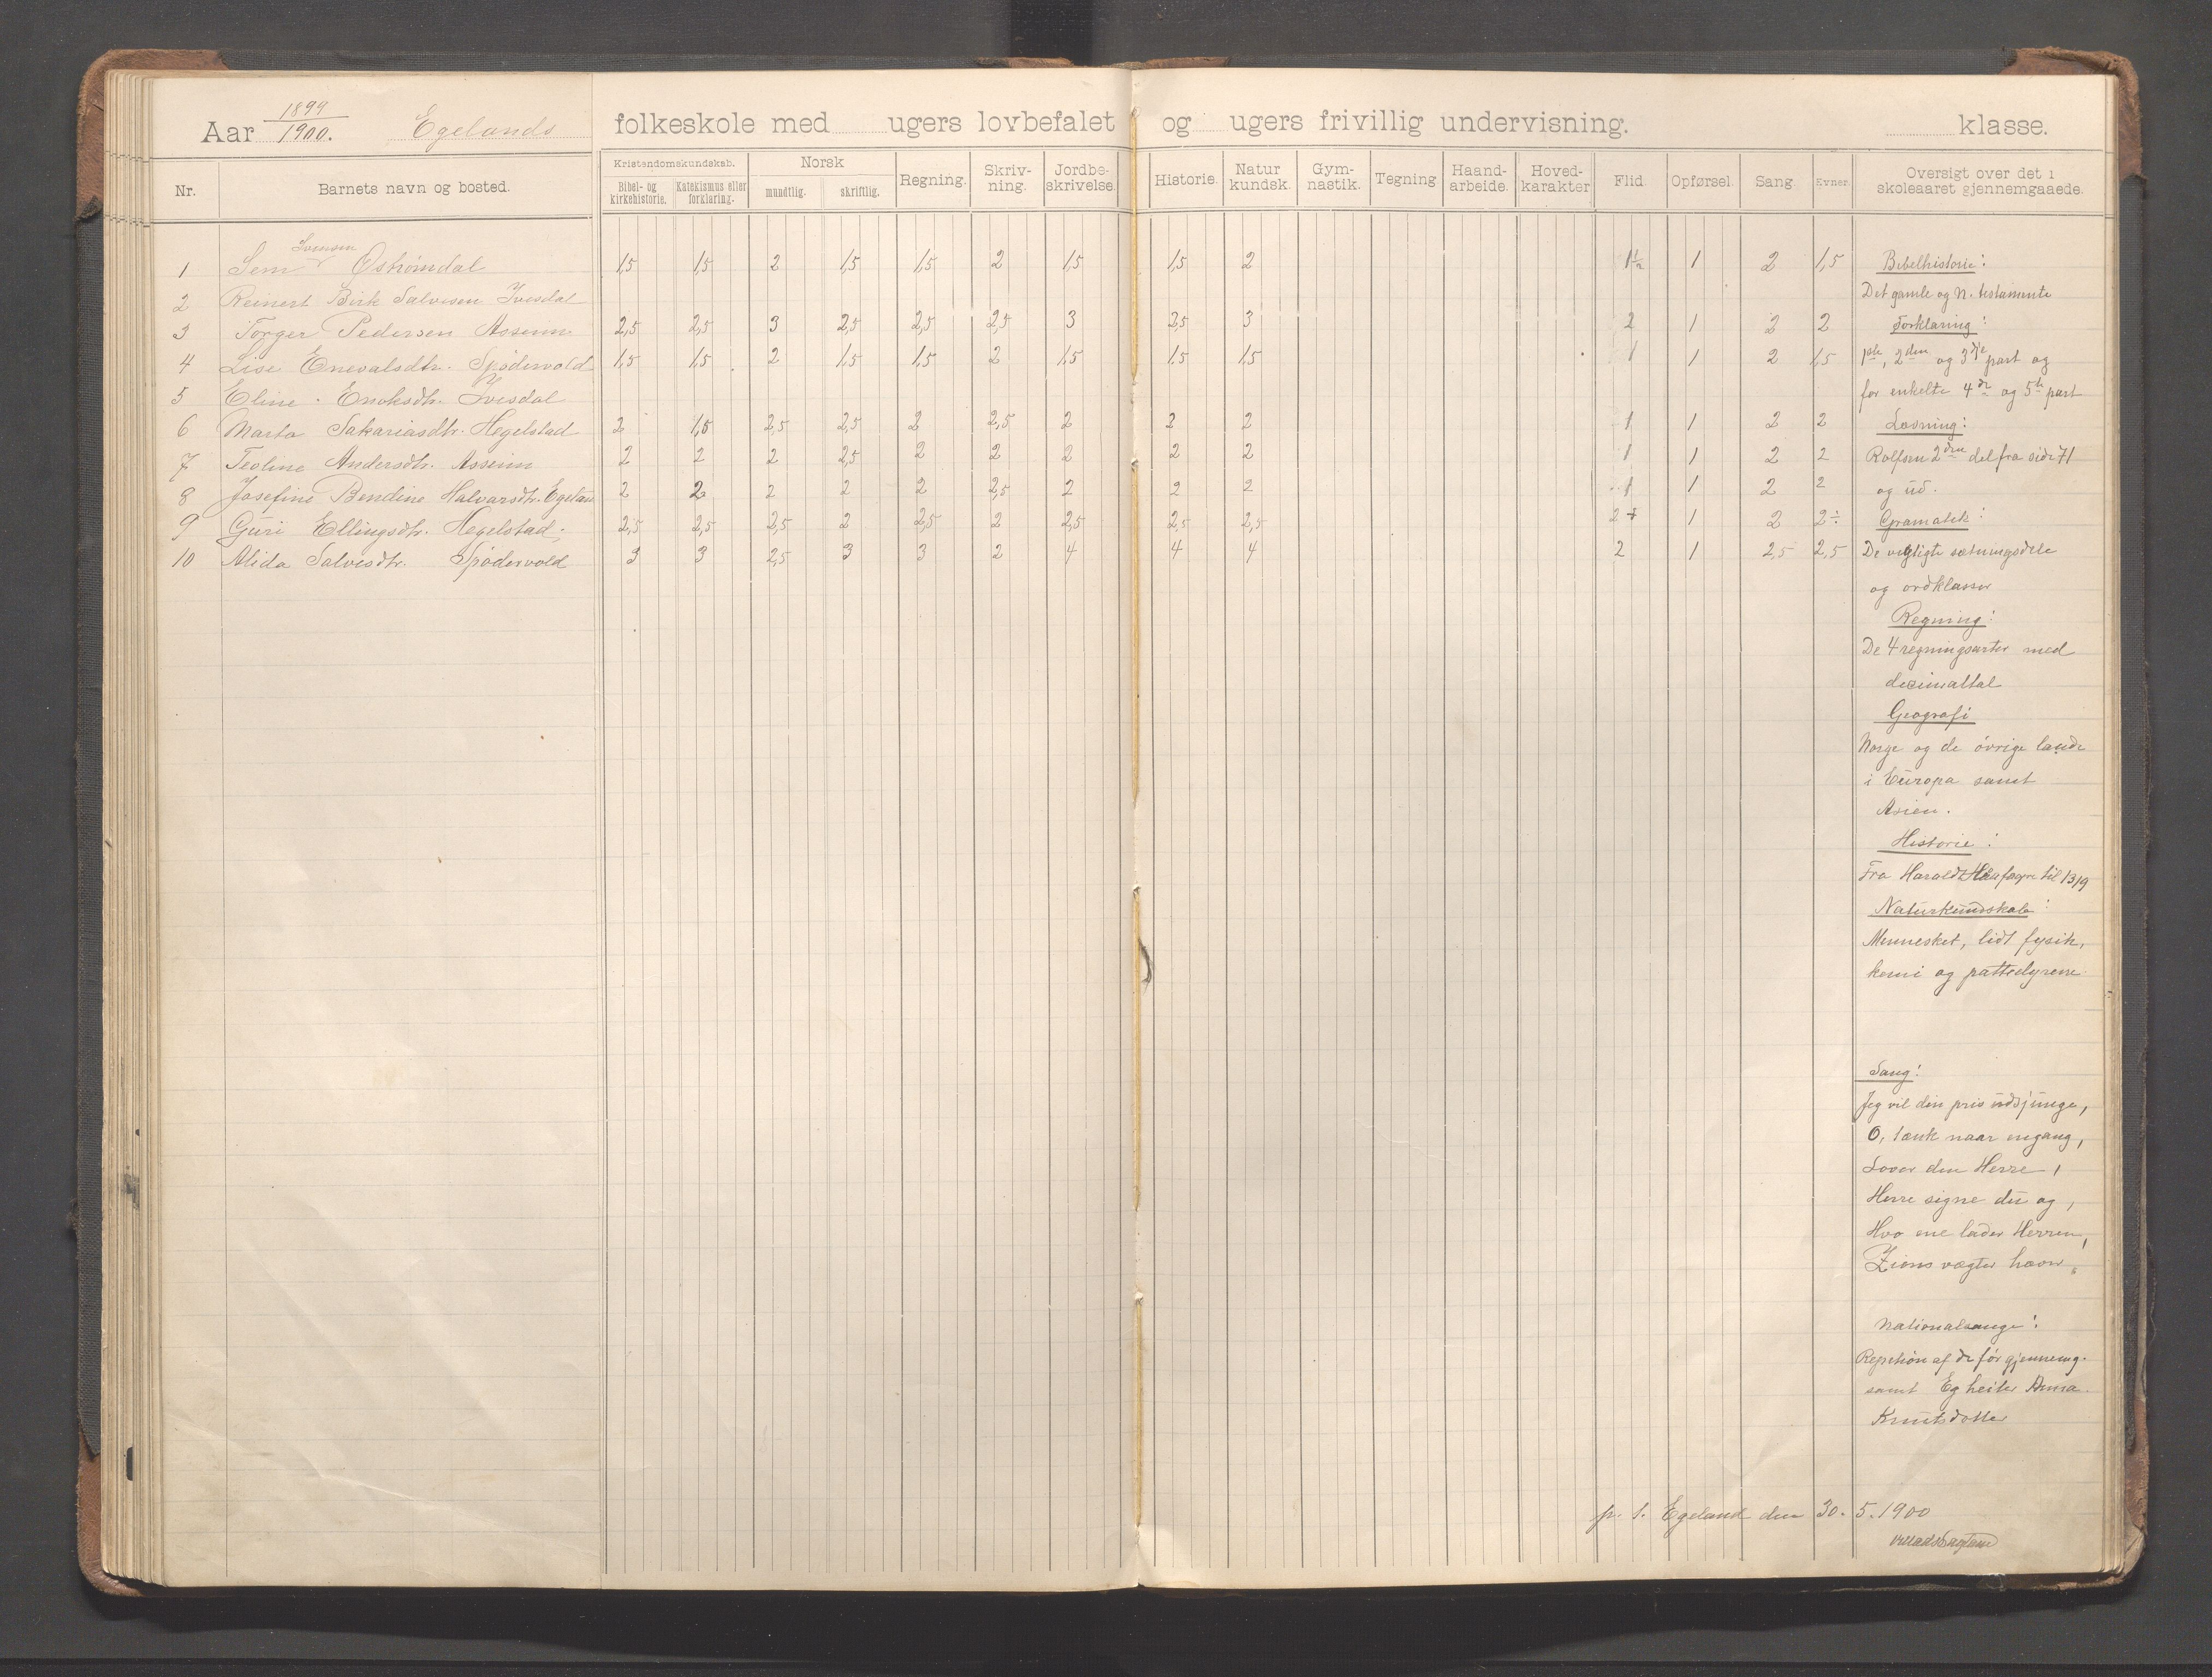 Aar 1899/1900. Egelands folkeskole med ugers lovbefalet og ugers frivillig undervisning. klasse.
Nr. Barnets navn og bosted. Kristendomskundskab. Bibel- og kirkehistorie. Katekismus eller forklaring. Norsk mundtlig. skriftlig. Regning. Skriv-ning. Jordbe-skrivelse. Historie. Natur kundsk. Gym-nastik. Tegning Haand-arbeide. Hoved-karakter Flid. Opførsel. Sang Evner. Oversigt over det i skoleaaret gjennemgaaede.
Svensen
1 Sem Ostrømdal 1,5 1,5 2 1,5 1,5 2 1,5 1,5 2 1½ 1 2 1,5
2 Reinert Birk Salvesen Ivesdal
3 Torger Pedersen Asseim 2,5 2,5 3 2,5 2,5 2,5 3 2,5 3 2 1 2 2
4 Lise Enevalsdtr. Spødervold 1,5 1,5 2 1,5 1,5 2 1,5 1,5 1,5 1 1 2 1,5
5 Eline Enoksdtr. Ivesdal
6 Marta Sakariasdtr. Hegelstad 2 1,5 2,5 2,5 2 2,5 2 2 2 1 1 2 2
7 Teoline Andersdtr. Asseim 2 2 2 2,5 2 2 2 2 2 1 1 2 2
8 Josefine Bendine Halvarsdtr. Egelan 2 2 2 2 2 2,5 2 2 2 1 1 2 2
9 Guri Ellingsdtr. Hegelstad 2,5 2,5 2,5 2 2,5 2 2,5 2,5 2,5 2+ 1 2 2÷
10 Alida Salvesdtr. Spødervold 3 3 2,5 3 3 2 4 4 4 2 1 2,5 2,5
Bibelhistorie:
Det gamle og n. testamente
Forklaring:
1ste, 2den og 3dje part og
for enkelte 4de og 5te part
Læsning:
Rolfsen 2den del fra side 71
og ud.
Gramatik:
De vigtigste sætningsdele
og ordklasser
Regning:
De 4 regningsarter med
decimaltal
Geografi
Norge og de øvrige lande
i Europa samt
Asien.
Historie:
Fra Harald Haarfagre til 1319
Naturkundskab:
Mennesket, lidt fysik,
kemi og pattedyrene
Sang:
Jeg vil din pris udsjunge,
O, tænk naar engang,
Lover den Herre,
Herre signe du og,
Hvo ene lader Herren,
Zions vægter hæver
Nationalsange:
Repetion af de før gjennemg.
samt Eg heiter Anna
Knutsdotter
p. t. Egeland den 30. 5. 1900